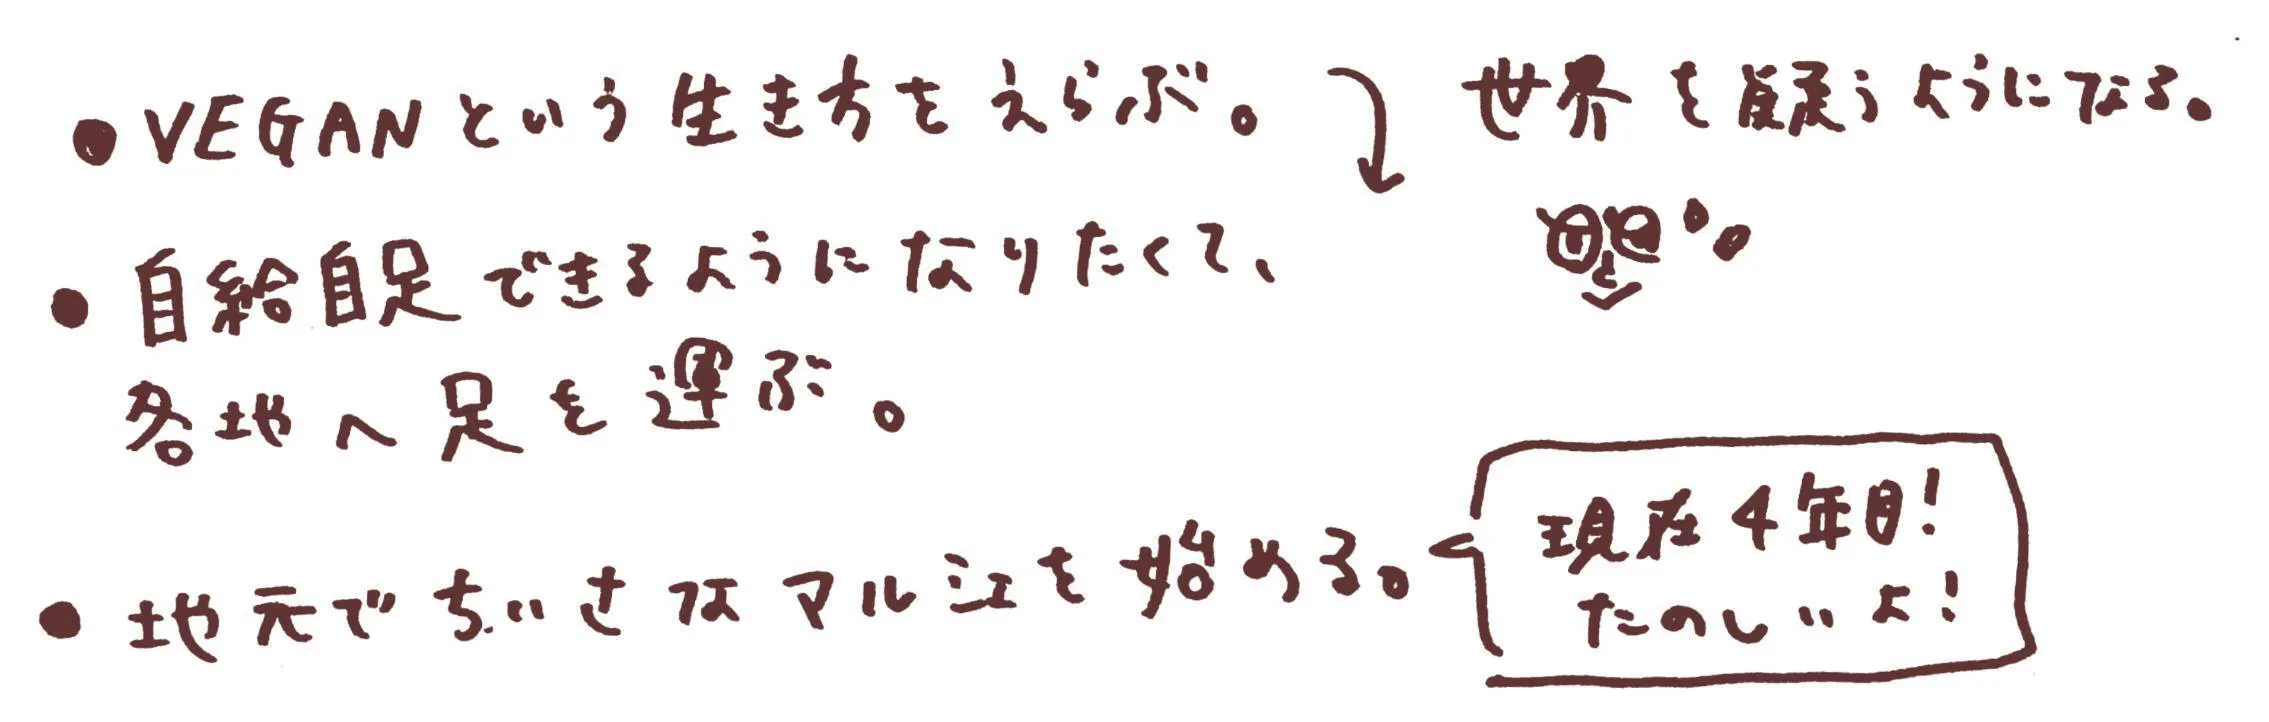 ● VEGANという生き方をえらぶ。 世界を疑うようになる。
● 自給自足できるようになりたくて、
各地へ足を運ぶ。
● 地元でちいさなマルシェを始める。
現在4年目!
たのしいよ!